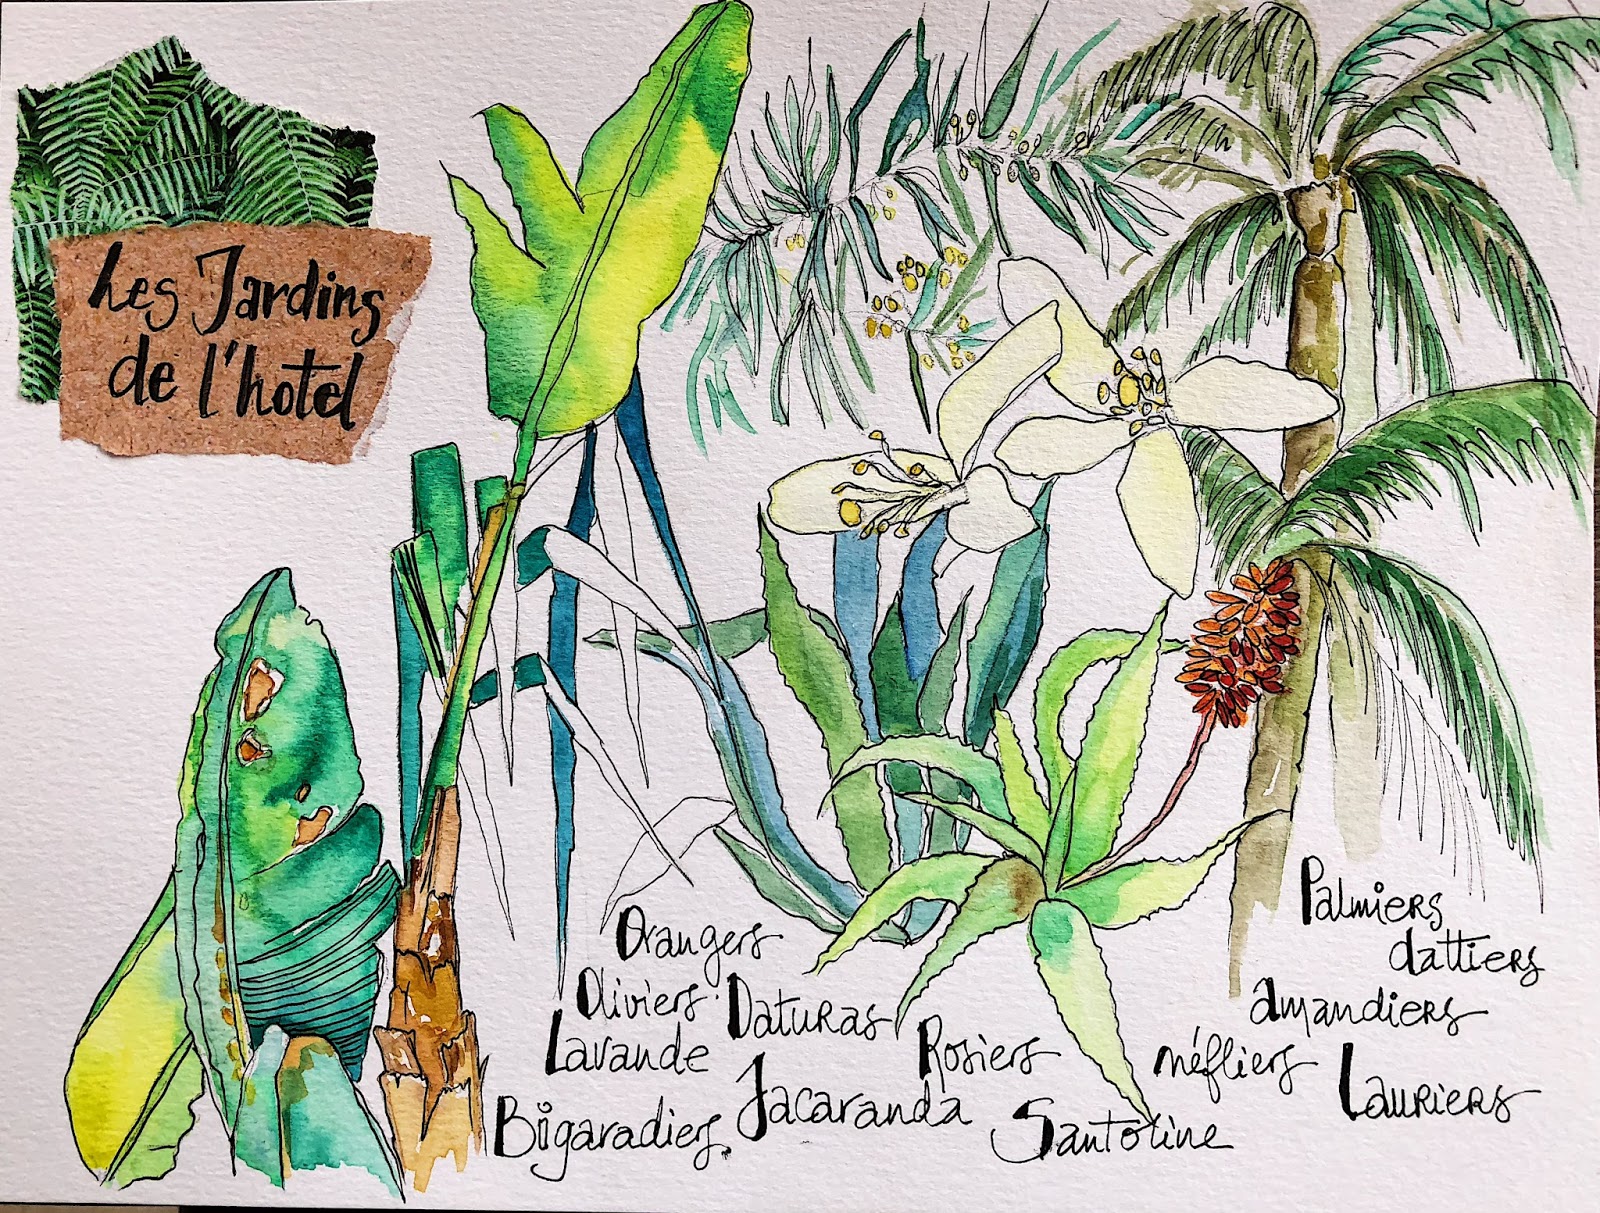 Les Jardins
de l'hotel
Orangers
Oliviers. Daturas
Lavande
Jacaranda
Bigaradiers.
Rosiers
Santoline
Palmiers
dattiers
amandiers
néfliers
Lauriers